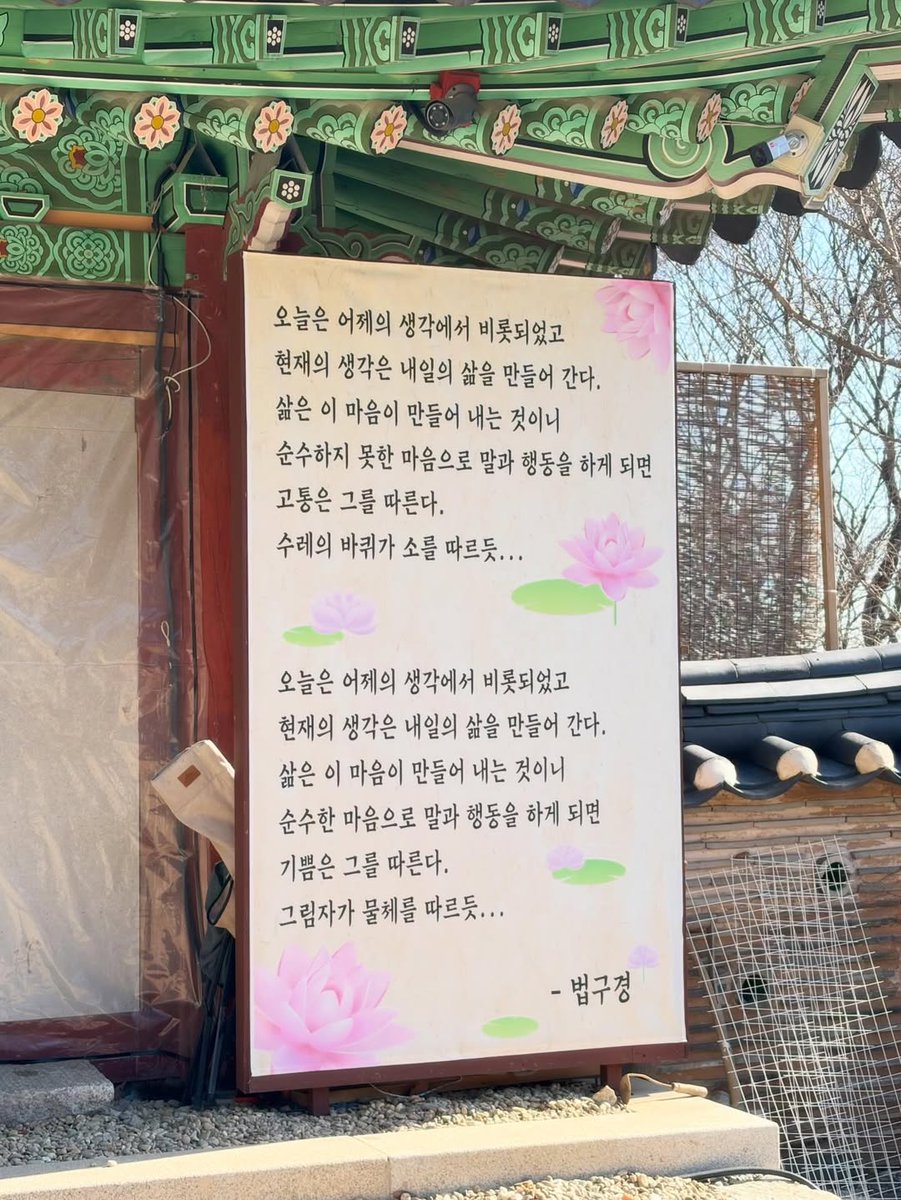 오늘은 어제의 생각에서 비롯되었고
현재의 생각은 내일의 삶을 만들어 간다.
삶은 이 마음이 만들어 내는 것이니
순수하지 못한 마음으로 말과 행동을 하게 되면
고통은 그를 따른다.
수레의 바퀴가 소를 따르듯...
오늘은 어제의 생각에서 비롯되었고
현재의 생각은 내일의 삶을 만들어 간다.
삶은 이 마음이 만들어 내는 것이니
순수한 마음으로 말과 행동을 하게 되면
기쁨은 그를 따른다.
그림자가 물체를 따르듯...
- 법구경